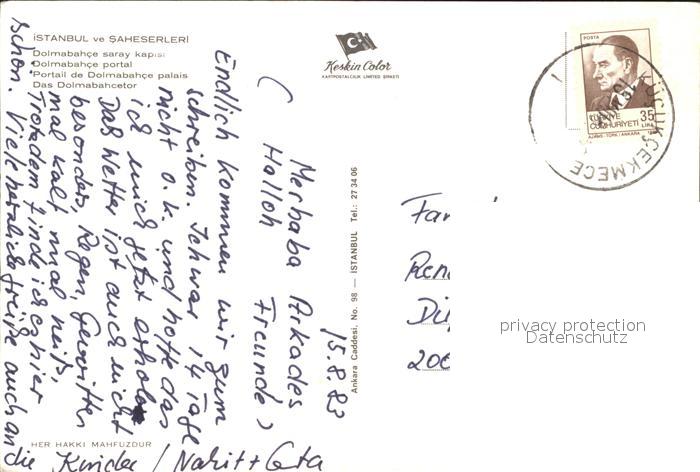 İSTANBUL ve ŞAHESERLERİ
Dolmabahçe saray kapısı
Dolmabahçe portal
Portail de Dolmabahçe palais
Das Dolmabahcetor
Keskin Color
KARTPOSTALCILIK LIMITED ŞİRKETİ
POSTA
TÜRKİYE
CUMHURİYETİ
35
LİRA
AJANS-TÜRK/ANKARA
KÜÇÜKÇEKMECE
15.8.83
Merhaba Arkades
( Halloh Freunde )
Endlich kommen wir zum
schreiben. Ich war 14 Tage
nicht o.k. und hoffe das
ich mich jetzt erhole
Das Wetter ist auch nicht
besonders, Regen, Gewitter
mal kalt mal heiß,
Trotzdem finde ich es hier
schön. Viele herzliche Grüße auch an
die Kinder / Nahit +
Ankara Caddesi, No. 98 — İSTANBUL Tel.: 27 34 06
HER HAKKI MAHFUZDUR
Fam
Ren
200
privacy protection
Datenschutz